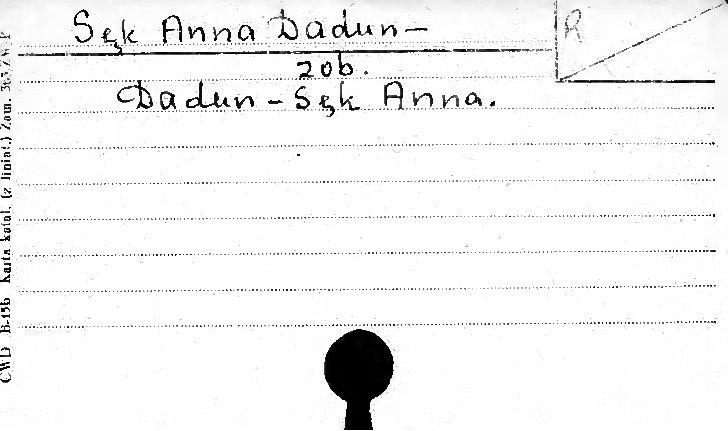 Sęk Anna Dadun-
R
zob.
Dadun-Sęk Anna.
CWD B-15b Karta katal. (z liniat.) Zam.